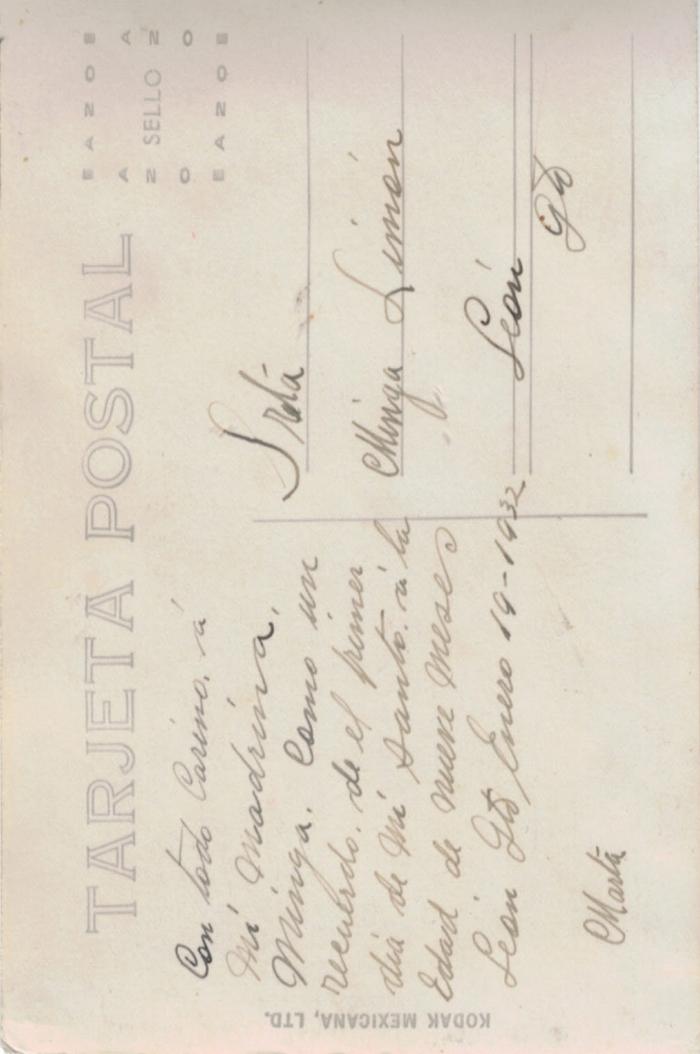 TARJETA POSTAL
EAZOE
A A
Z SELLO N
O O
EAZOE
Con todo Carino. á
Mi Madrina.
Minga. Como un
recuerdo. de el primer
dia de Mi Santo. á la
Edad de nueve meses
León Gto Enero 19-1932
Marta
Srita
Minga Limón
León
Gto
KODAK MEXICANA, LTD.